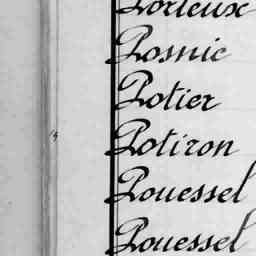 Porteux
Posnic
Potier
Potiron
Pouessel
Pouessel